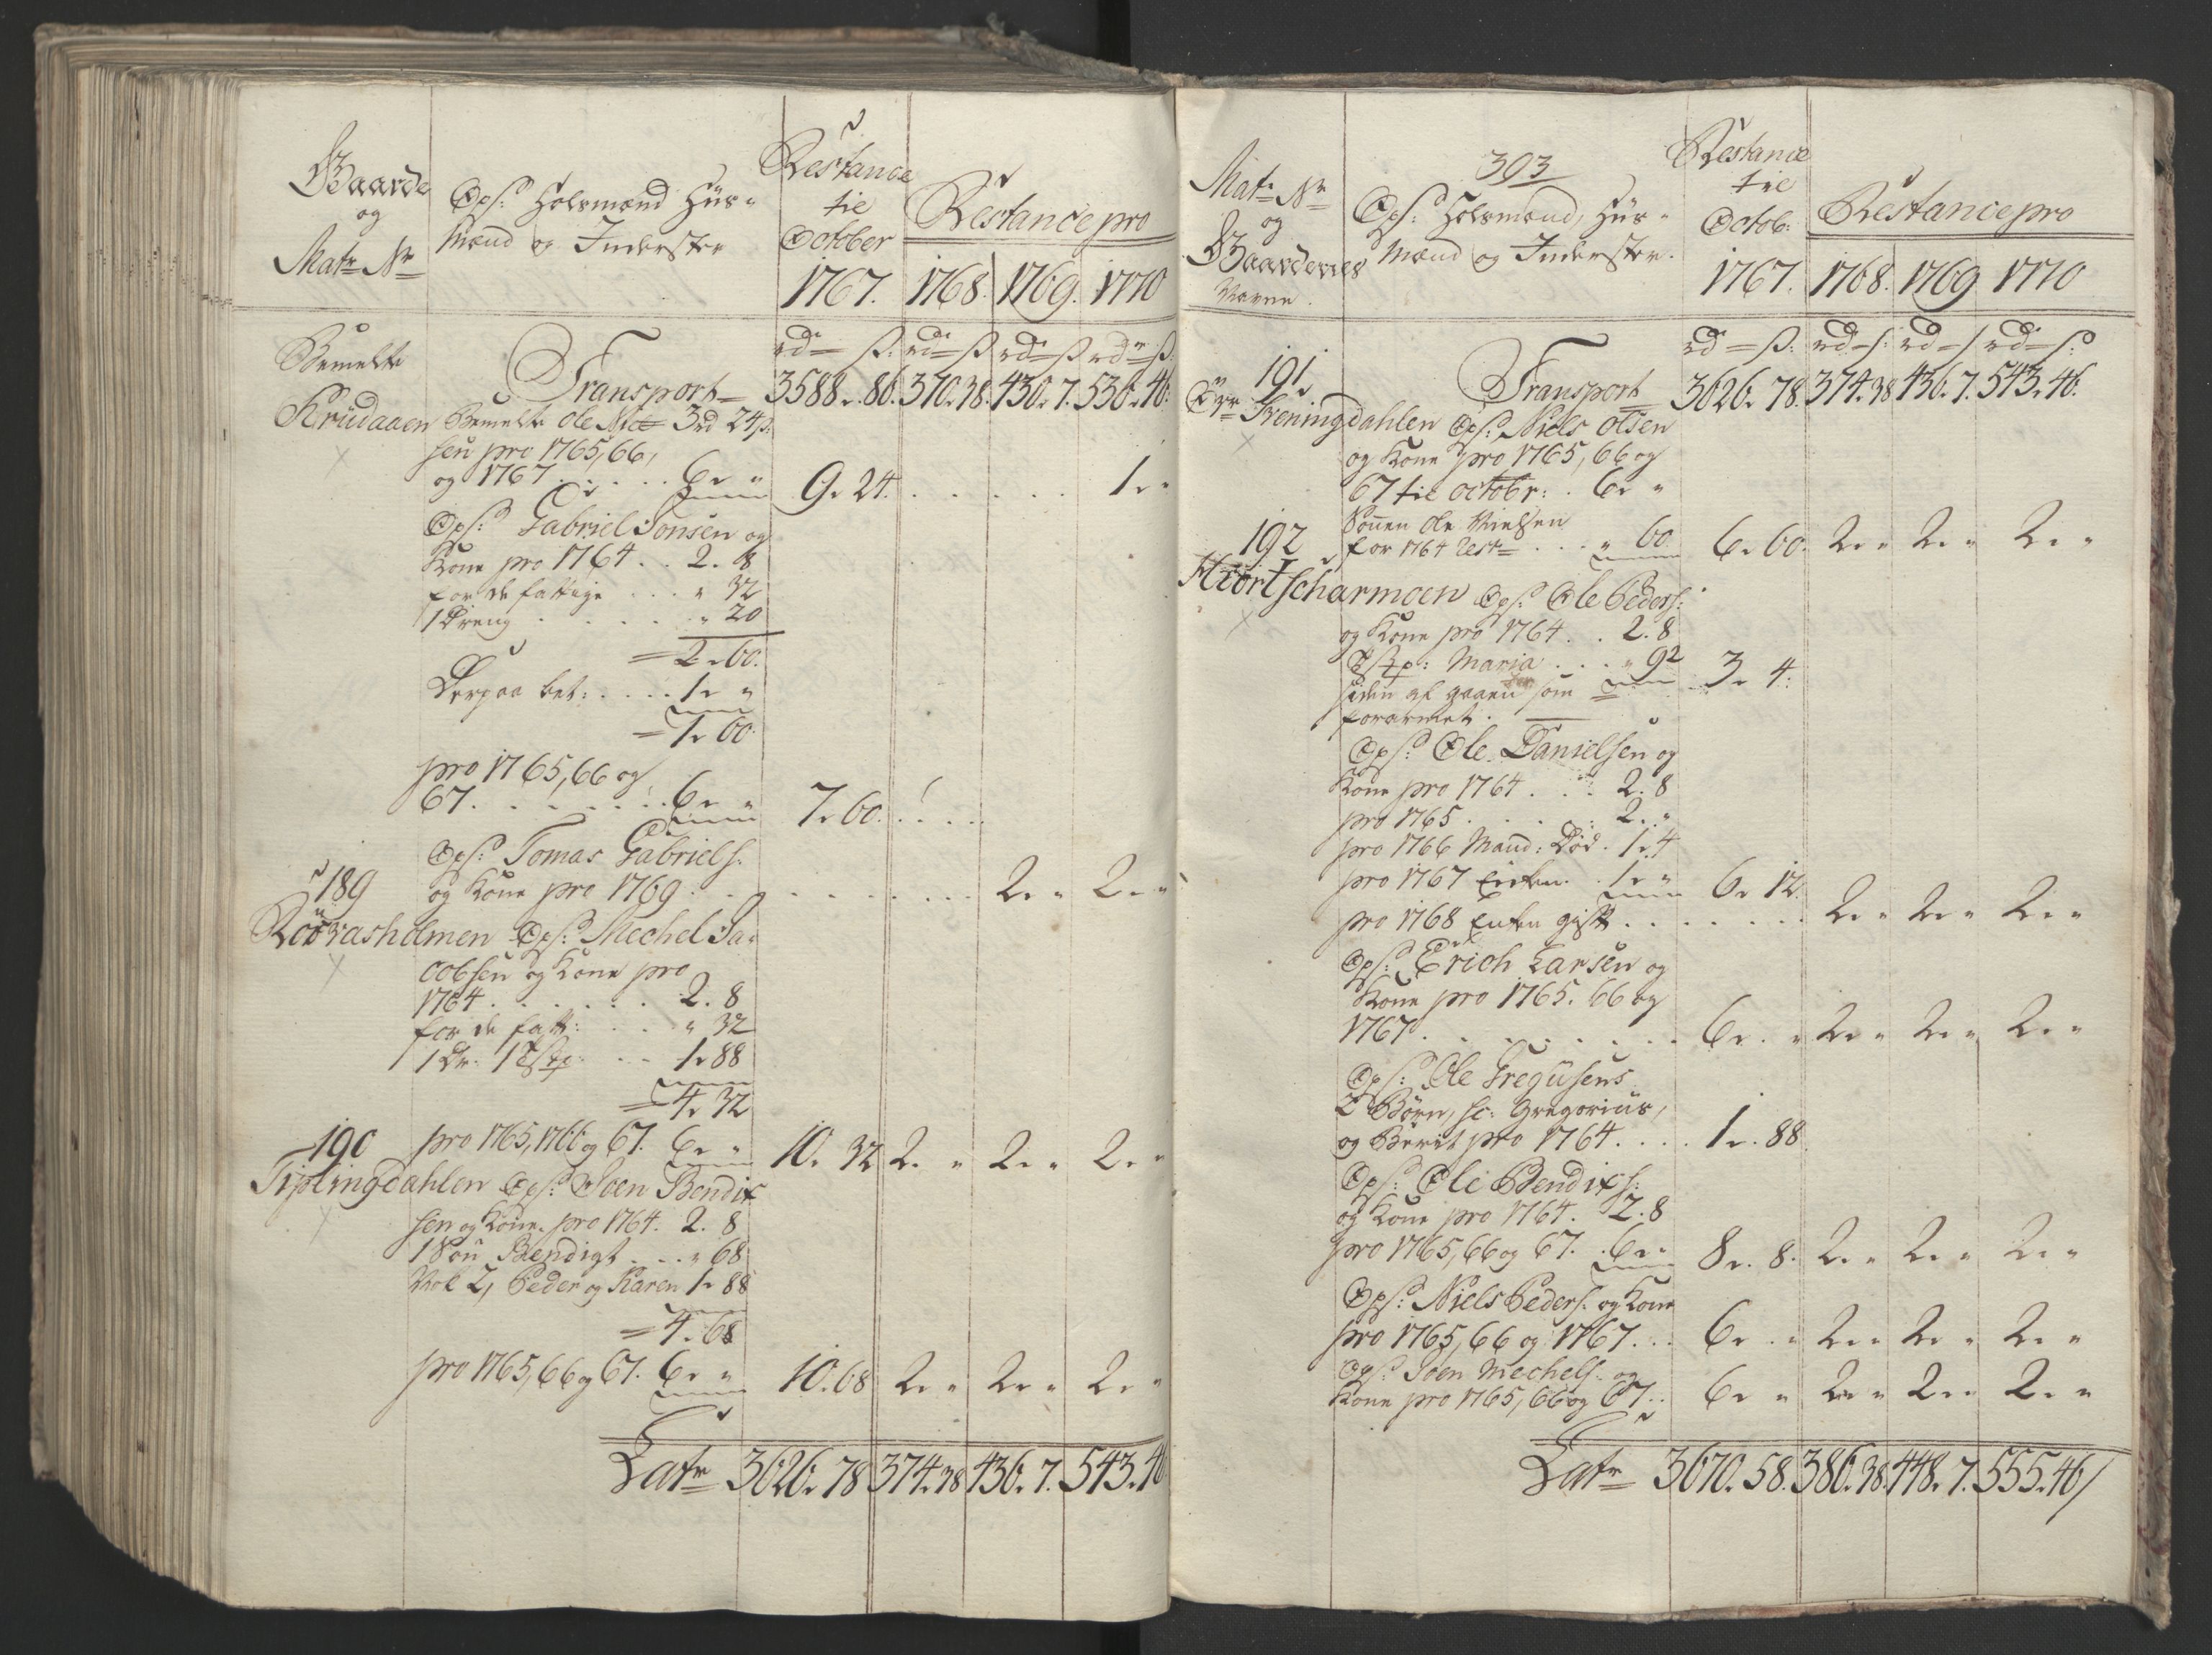 Gaarde
og
Matr No
Ops: Holsmænd Hüs-
mænd og Inderster
Restance
til
October
1767.
Restance pro
1768. 1769. 1770
rd ß. rd ß rd ß rd ß.
Bemelte
Krüdaaen
Transport 3588. 86. 370. 38. 430. 7. 536. 46.
Bemelte Ole Nic 3rd 24ß.
sen pro 1765, 66,
og 1767 . . . . . 6. " 9. 24. . . . . . 1. "
Ops: Gabriel Jonsen og
Kone pro 1764 . . 2. 8
for de fattige . . . " 32
1 Dreng . . . . . " 20
= 2. 60.
Derpaa bet: . . . . 1. "
= 1. 60.
pro 1765, 66 og
67. . . . . . . 6. " 7. 60. . . . .
Ops: Tomas Gabriels:
189
og Kone pro 1769 . . . . . . . 2. " 2. "
Röörasholmen Ops: Mechel Ja-
cobsen og Kone pro
1764 . . . . . . 2. 8
for de fatt: . . . " 32
1 Dr: 1 Tstp: . . . 1. 88
= 4. 32
190
pro 1765, 1766 og 67. 6. " 10. 32 2. " 2. " 2. "
Tiplingdahlen Ops: Joen Bendix
sen og Kone pro 1764. 2. 8
1 Søn Bendigt . . . " 68
Nok 2, Peder og Karen 1. 88
= 4. 68
pro 1765, 66 og 67. 6. " 10. 68 2. " 2. " 2. "
Latr 3626. 78 374. 38 436. 7. 543. 46
393
Matr No
og
Gaardernes
Navne.
Ops: Holsmænd, Hüs-
mænd og Inderster.
Restance
til
Octob:
1767.
Restance pro
1768. 1769 1770
rd ß. rd ß. rd ß rd ß.
191
Transport 3626. 78. 374. 38 436. 7. 543. 46.
Øvr Sveningdahlen Ops: Niels Olsen
og Kone pro 1765, 66 og
67 til octobr: . 6. "
Sønnen Ole Nielsen
for 1764 Rest . . . " 60. 6. 60. 2. " 2. " 2. "
192
Hiortscharmoen Ops: Ole Peders:
og Kone pro 1764 . . 2. 8
Tstp: Maria . . . " 92 3. 4.
siden af gaaen som
forarmet.
Ops: Ole Danielsen og
Kone pro 1764 . . . 2. 8
pro 1765 . . . . . 2. "
pro 1766 Mand: Död. 1. 4
pro 1767 Encken . 1. " 6. 12.
pro 1768 Enken gift . . . . . . . 2. " 2. " 2. "
Ops: Erich Larsen og
Kone pro 1765. 66 og
1767 . . . . . . . . 6. " 2. " 2. " 2. "
Ops: Ole Gregusens
2 Börn, sc: Gregorius,
og Berit pro 1764 . . . . 1. 88
Ops: Ole Bendixs:
og Kone pro 1764. 2. 8
pro 1765, 66 og 67. . 6. " 8. 8. 2. " 2. " 2. "
Ops: Niels Peders: og Kone
pro 1765, 66 og 1767 . . . 6. " 2. " 2. " 2. "
Ops: Joen Mechels: og
Kone pro 1765, 66 og 67 . . 6. " 2. " 2. " 2. "
Latr 3670. 58. 386. 38. 448. 7. 555. 46/